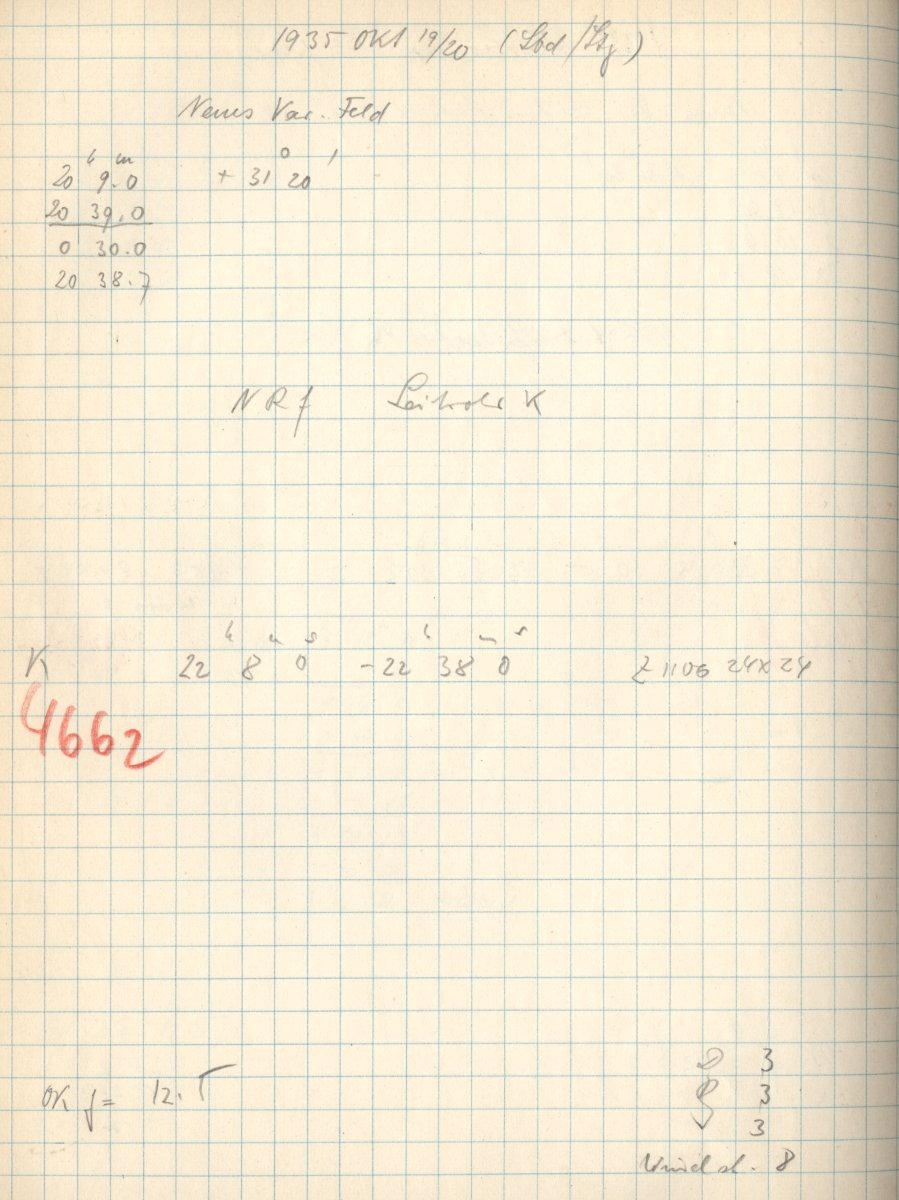 1935 OKt 19/20 (Sbd/Stg.)
Neues Var. Feld
h m o '
20 9.0 + 31 20
20 39.0
0 30.0
20 38.7
NRf Leitrohr K
h m s h m s
K 22 8 0 -22 38 0 Z 1106 24x24
4662
OK f = 12.5
D 3
3
3
Wind 8